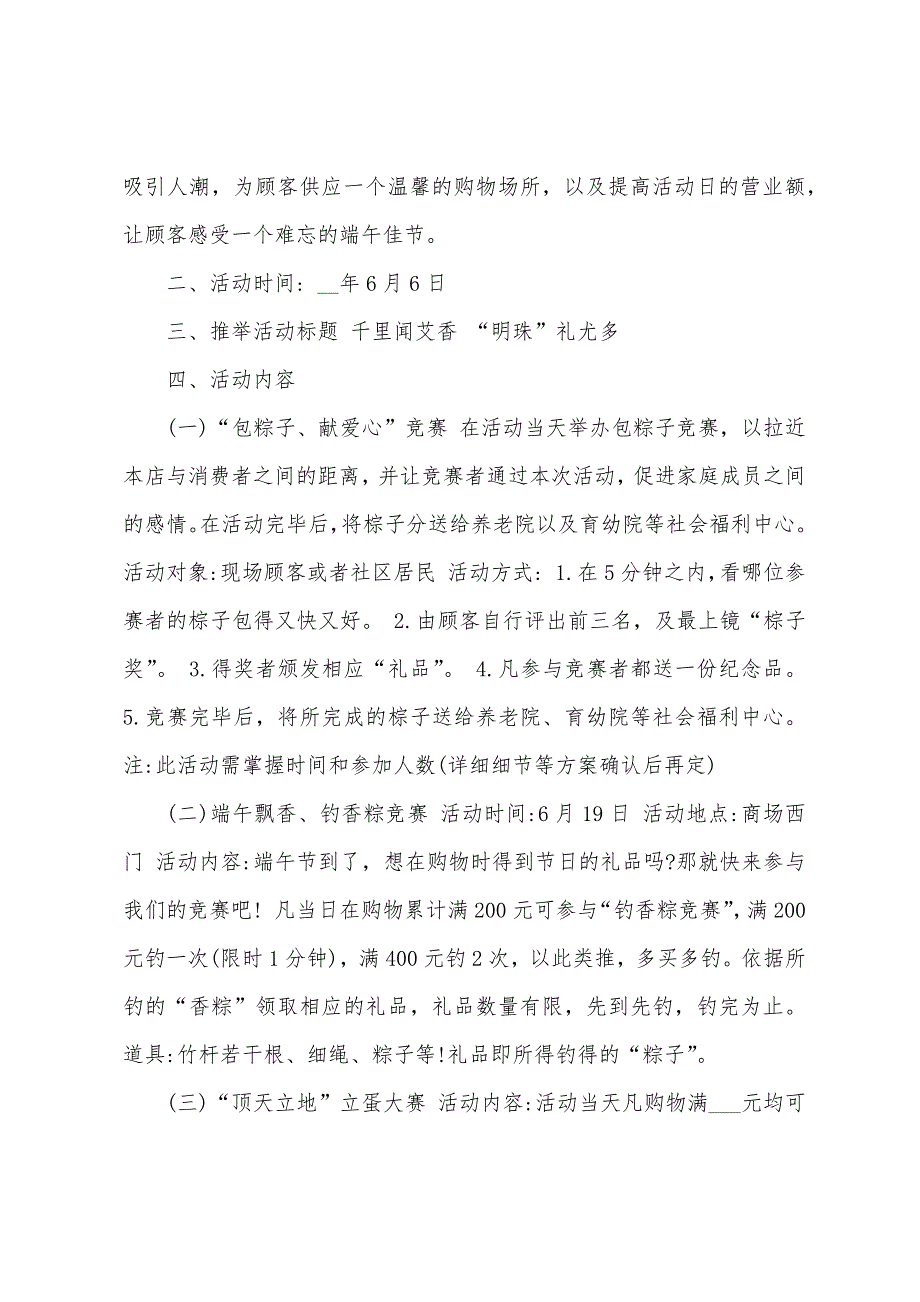 吸引人潮，为顾客供应一个温馨的购物场所，以及提高活动日的营业额，
让顾客感受一个难忘的端午佳节。
二、活动时间: __年6月6日
三、推举活动标题 千里闻艾香 “明珠”礼尤多
四、活动内容
(一)“包粽子、献爱心”竞赛 在活动当天举办包粽子竞赛，以拉近
本店与消费者之间的距离，并让竞赛者通过本次活动，促进家庭成员之间
的感情。在活动完毕后，将棕子分送给养老院以及育幼院等社会福利中心。
活动对象:现场顾客或者社区居民 活动方式: 1.在5分钟之内，看哪位参
赛者的棕子包得又快又好。 2.由顾客自行评出前三名，及最上镜“棕子
奖”。 3.得奖者颁发相应“礼品”。 4.凡参与竞赛者都送一份纪念品。
5.竞赛完毕后，将所完成的棕子送给养老院、育幼院等社会福利中心。
注:此活动需掌握时间和参加人数(详细细节等方案确认后再定)
(二)端午飘香、钓香粽竞赛 活动时间:6月19日 活动地点:商场西
门 活动内容:端午节到了，想在购物时得到节日的礼品吗?那就快来参与
我们的竞赛吧! 凡当日在购物累计满200元可参与“钓香粽竞赛”，满200
元钓一次(限时1分钟)，满400元钓2次，以此类推，多买多钓。依据所
钓的“香粽”领取相应的礼品，礼品数量有限，先到先钓，钓完为止。
道具:竹杆若干根、细绳、粽子等!礼品即所得钓得的“粽子”。
(三)“顶天立地”立蛋大赛 活动内容:活动当天凡购物满___元均可